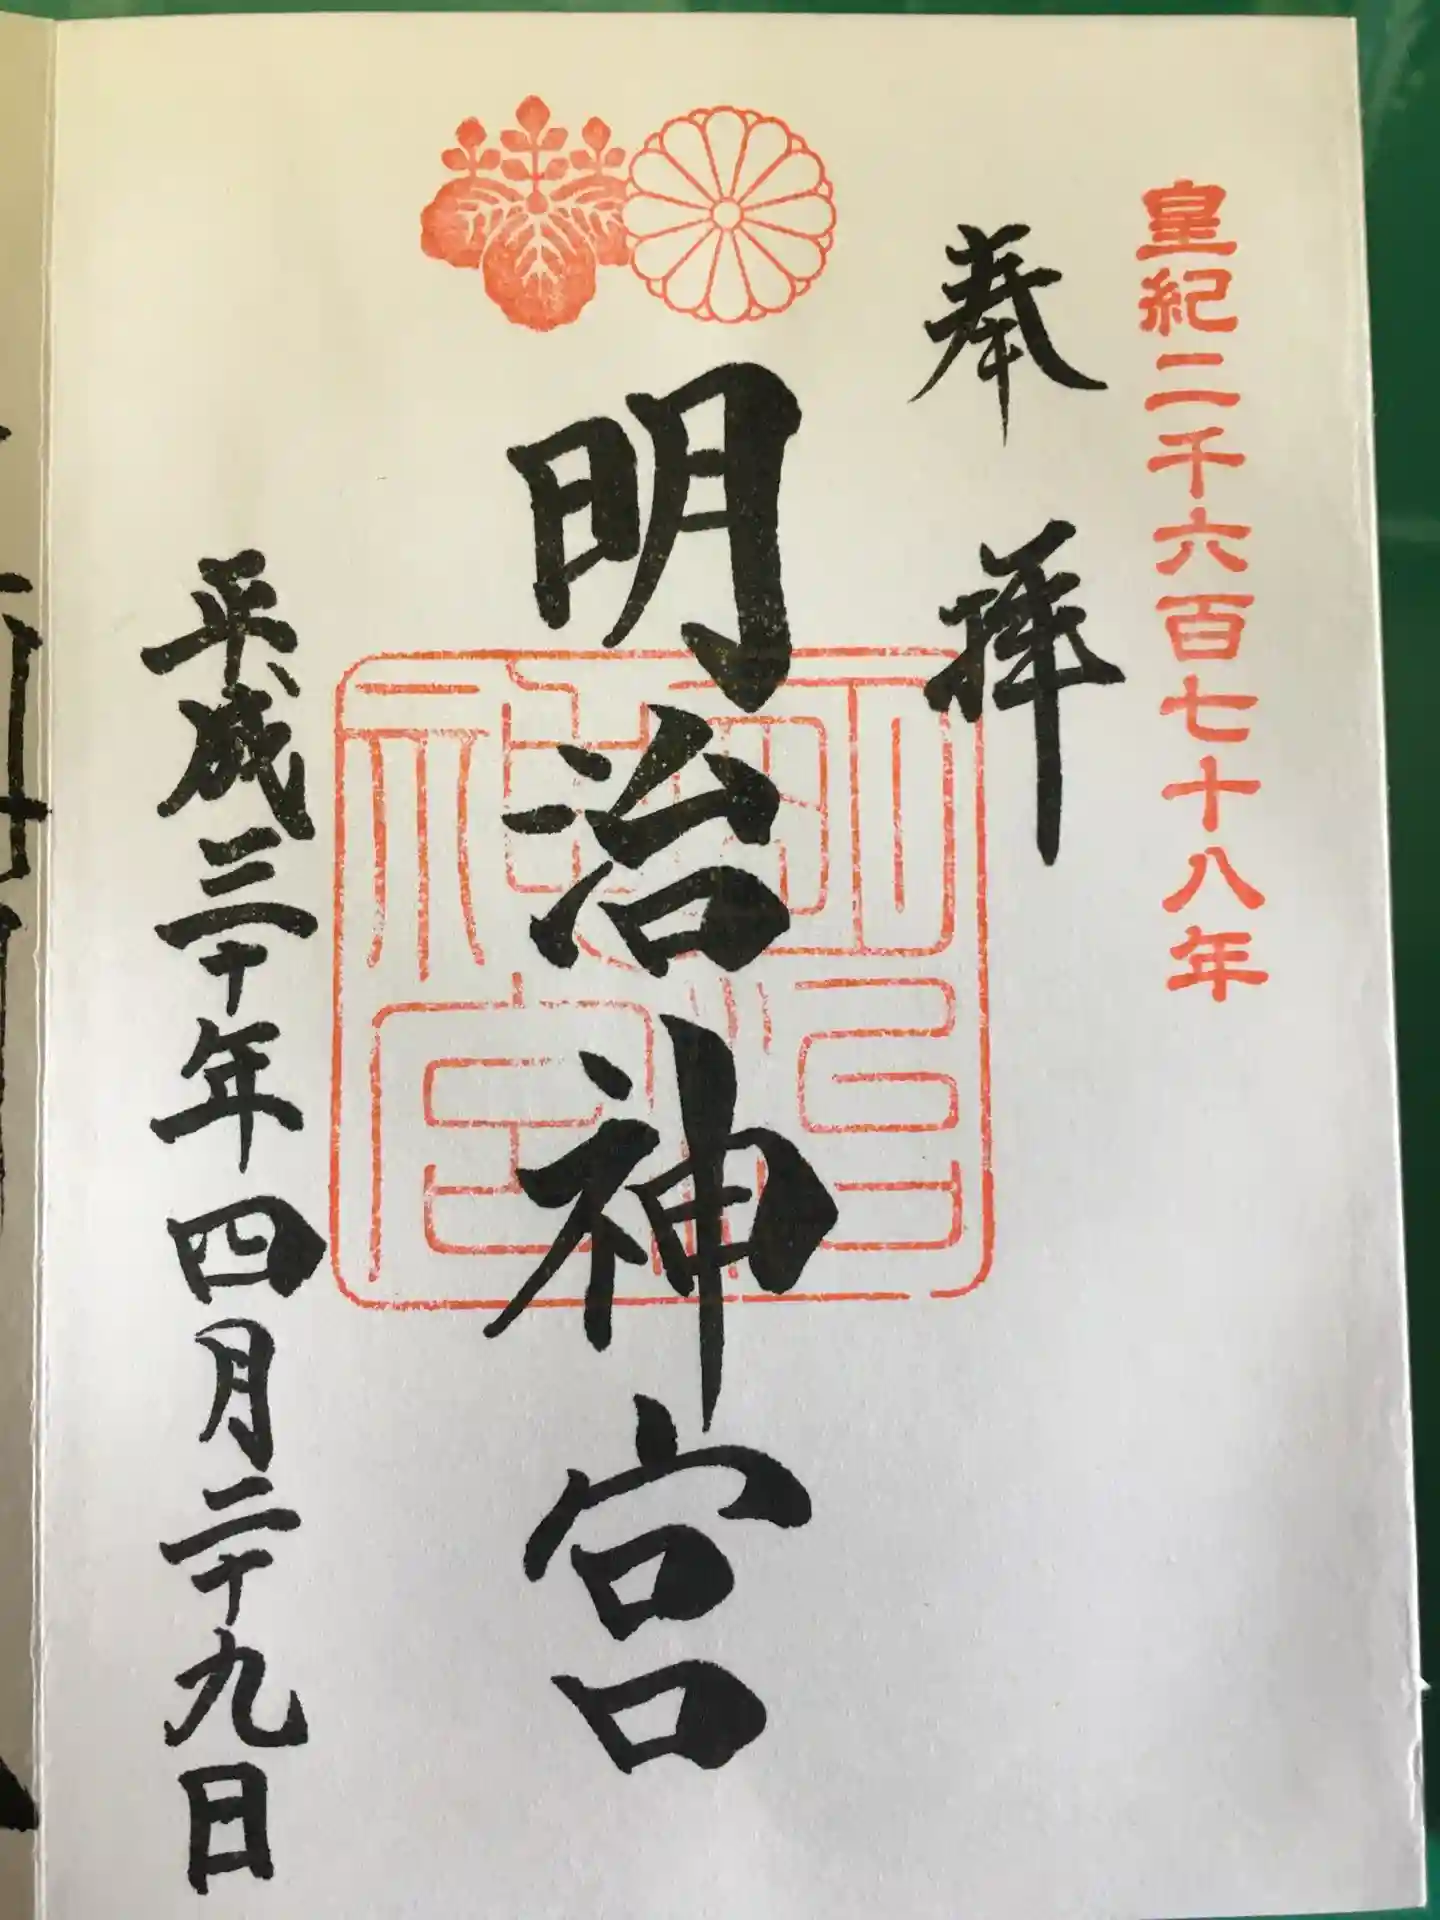 皇紀二千六百七十八年
奉拝
明治神宮
平成三十年四月二十九日